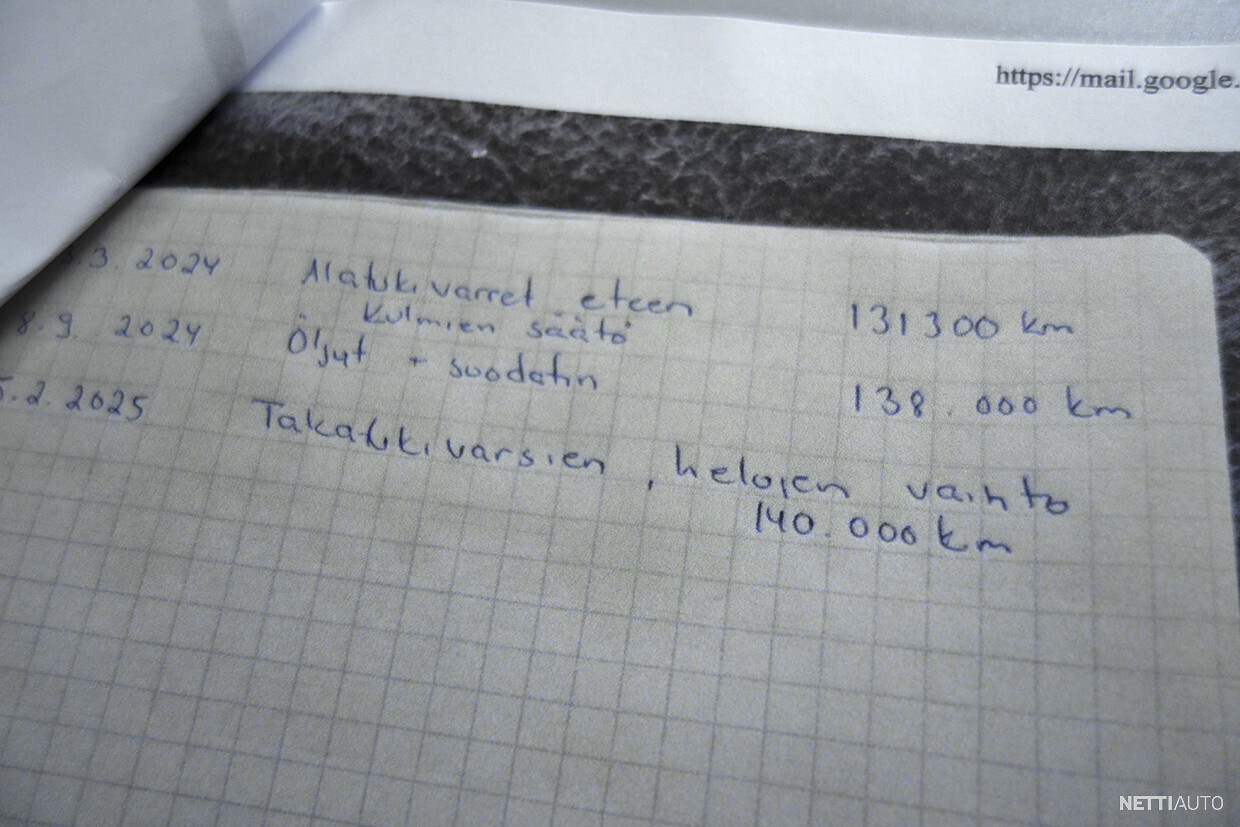 https://mail.google.
.3. 2024 Alatukivarret eteen 131300 km
Kulmien säätö
8.9. 2024 Öljyt + suodatin 138.000 km
5.2.2025 Takatukivarsien, helojen vaihto
140.000 km
NETTIAUTO